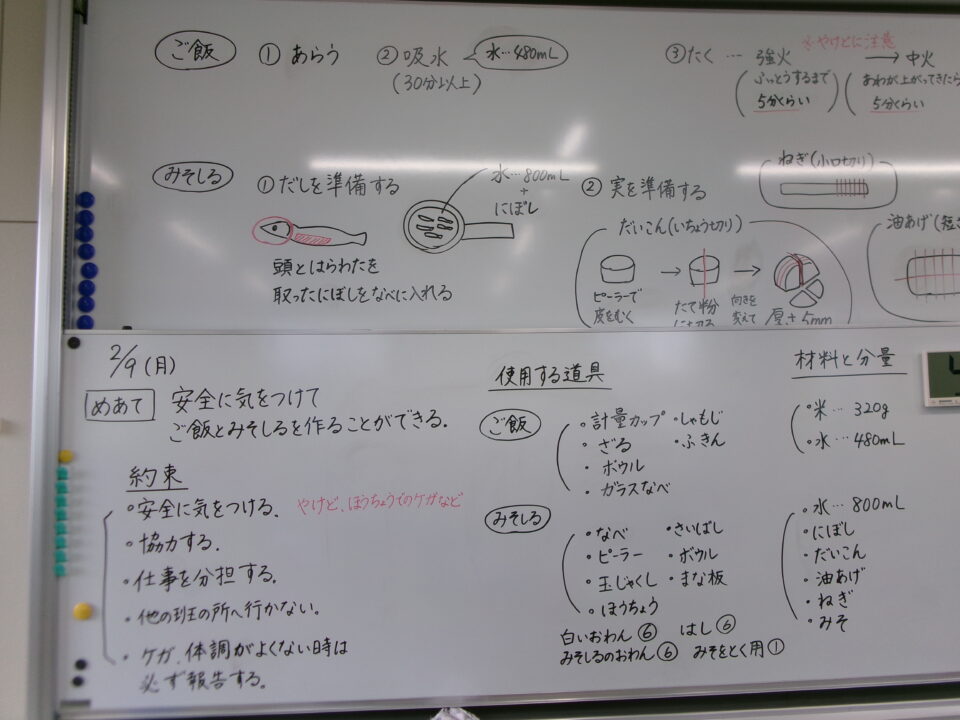 ご飯
① あらう
② 吸水
(30分以上)
水…480mL
※やけどに注意
③たく … 強火 → 中火
(ふっとうするまで
5分くらい)
(あわが上がってきたら
5分くらい
みそしる
①だしを準備する
水…800mL
+
にぼし
頭とはらわたを
取ったにぼしをなべに入れる
② 実を準備する
ねぎ(小口切り)
だいこん(いちょう切り)
ピーラーで
皮をむく
たて半分
に切る
向きを
変えて
厚さ5mm
油あげ(短
2/9(月)
めあて
安全に気をつけて
ご飯とみそしるを作ることができる.
約束
・安全に気をつける. やけど、ほうちょうでのケガなど
・協力する.
・仕事を分担する.
・他の班の所へ行かない。
・ケガ、体調がよくない時は
必ず報告する.
使用する道具
ご飯
・計量カップ ・しゃもじ
・ざる ・ふきん
・ボウル
・ガラスなべ
みそしる
・なべ ・さいばし
・ピーラー ・ボウル
・玉じゃくし ・まな板
・ほうちょう
白いおわん⑥ はし⑥
みそしるのおわん⑥ みそをとく用①
材料と分量
・米… 320g
・水…480mL
・水…800mL
・にぼし
・だいこん
・油あげ
・ねぎ
・みそ